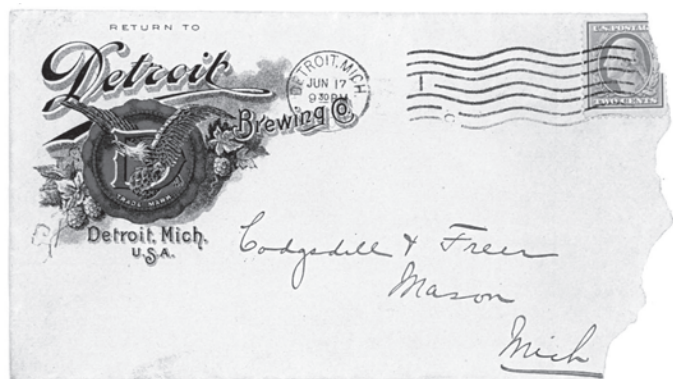 RETURN TO
Detroit
Brewing Co.
D
TRADE MARK
Detroit, Mich.
U.S.A.
DETROIT, MICH.
JUN 17
930PM
1
C
U.S. POSTAG
TWO CENTS
& Freer
Mason
Mich